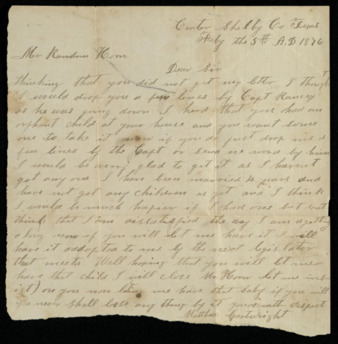 Center Shelby Co Texas
July the 5th A.D. 1876
Mr Kendrew Horn
Dear Sir
thinking that you did not get my letter I thought
I would drop you a few lines by Capt
as he was going down I heard that you had an
orphant child at your house and you want some
one to take it now if you will just drop me a
few lines by the Capt or send me word by him
I would be very glad to get it as I havent
got any one I have been married years and
have not got any children as yet and I think
I would be much happier if I had one but dont
think that I am dissatisfied the way I am
now if you will let me have it I will
have it adopted to me by the next legislator
that meets Well hoping that you will let me
have that child I will close Mr Horn let me
you now let me have that baby if you will
it never shall lack any thing by it respect
Cartwright